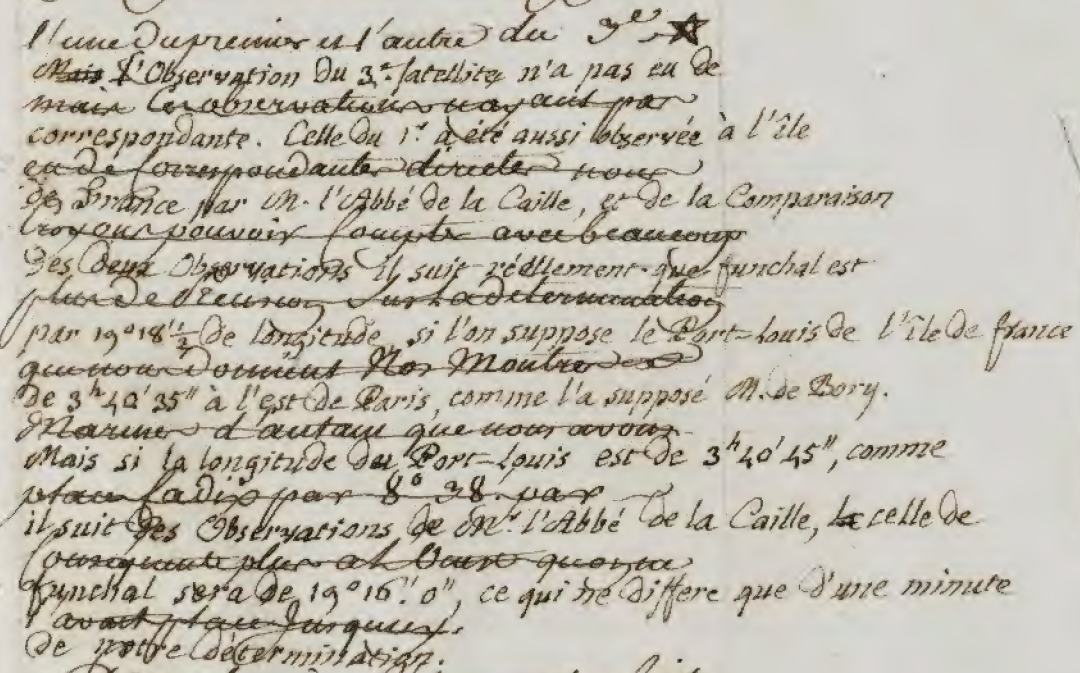 l'une du premier et l'autre du 3e ★
Mais L'Observation du 3e Satellite n'a pas eu de
mais les observations n'ayant pas
correspondante. Celle du 1r a été aussi observée à l'île
eu de Correspondantes directes nous
de France par M. l'Abbé de la Caille, et de la Comparaison
croyons pouvoir Compter avec beaucoup
des deux Observations il suit réellement que funchal est
plus de sur la détermination
par 19° 18' ½ de longitude, si l'on suppose le Port-Louis de l'île de france
que nous donnent Nos Montres
de 3h 40' 35" à l'est de Paris, comme l'a supposé M. de Bory.
Marines d'autant que nous avons
Mais si la longitude du Port-Louis est de 3h 40' 45", comme
placé Cadix par 8° 38. par
il suit des Observations de Mr. l'Abbé de la Caille, celle de
plus à l'Ouest qu'on ne
funchal sera de 19° 16'. 0", ce qui ne differe que d'une minute
l'avait placé jusqu'ici.
de notre détermination.